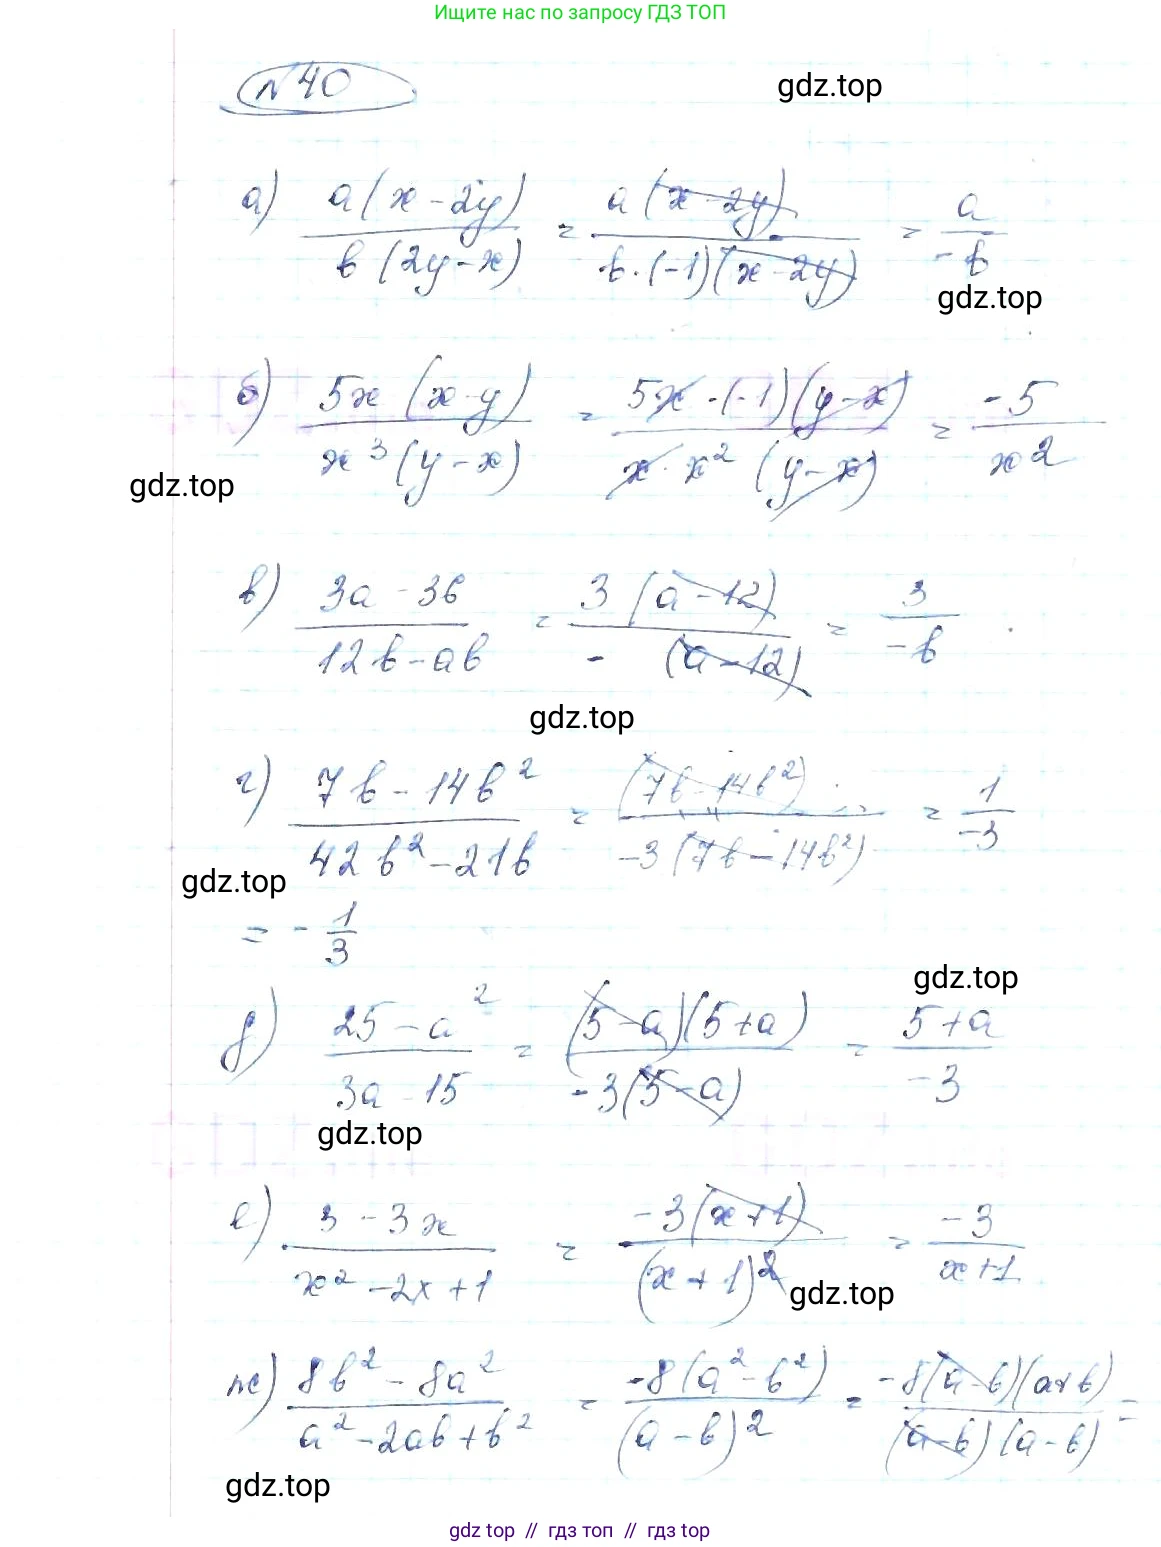 Ищите нас по запросу ГДЗ ТОП
№ 40
gdz.top
а) a(x-2y) / b(2y-x) = a(x-2y) / b·(-1)(x-2y) = a / -b
gdz.top
б) 5x(x-y) / x³(y-x) = 5x·(-1)(y-x) / x·x²(y-x) = -5 / x²
gdz.top
в) 3a-36 / 12b-ab = 3(a-12) / -(a-12) = 3 / -b
gdz.top
г) 7b-14b² / 42b²-21b = (7b-14b²) / -3(7b-14b²) = 1 / -3
gdz.top
= -1/3
gdz.top
д) 25-a² / 3a-15 = (5-a)(5+a) / -3(5-a) = 5+a / -3
gdz.top
е) 3-3x / x²-2x+1 = -3(x+1) / (x+1)² = -3 / x+1
gdz.top
ж) 8b²-8a² / a²-2ab+b² = -8(a²-b²) / (a-b)² = -8(a-b)(a+b) / (a-b)(a-b) =
gdz.top
gdz top // гдз топ // гдз top